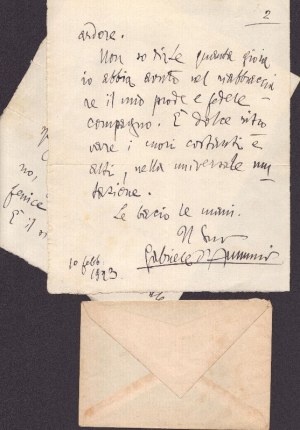 2
ardore.
Non so dirLe quanta gioia
io abbia avuto nel riabbraccia
re il mio prode e fedele
compagno. È dolce ritro
vare i cuori costanti e
alti, nella universale mu
tazione.
Le bacio le mani.
Il Suo
Gabriele d'Annunzio
10 febb.
1923
no,
fenice
È il